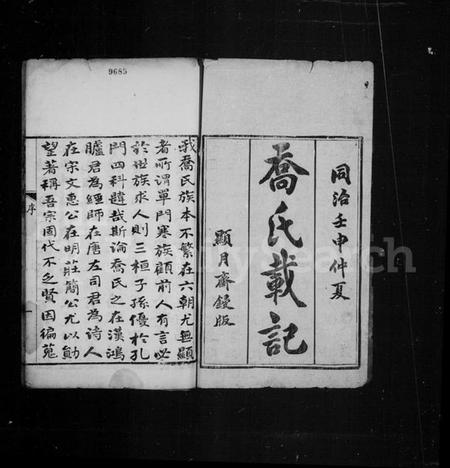 9685
同治壬申仲夏
喬氏載記
顯月齋鋟版
我喬氏族本不繁在六朝尤無顯
者所謂單門寒族顧前人有言必
於世族求人則三桓子孫優於孔
門四科韙哉斯論喬氏之在漢鴻
臚君為經師在唐左司君為詩人
在宋文惠公在明莊簡公尤以勛
望著稱吾宗固代不乏賢因編蒐
序
一